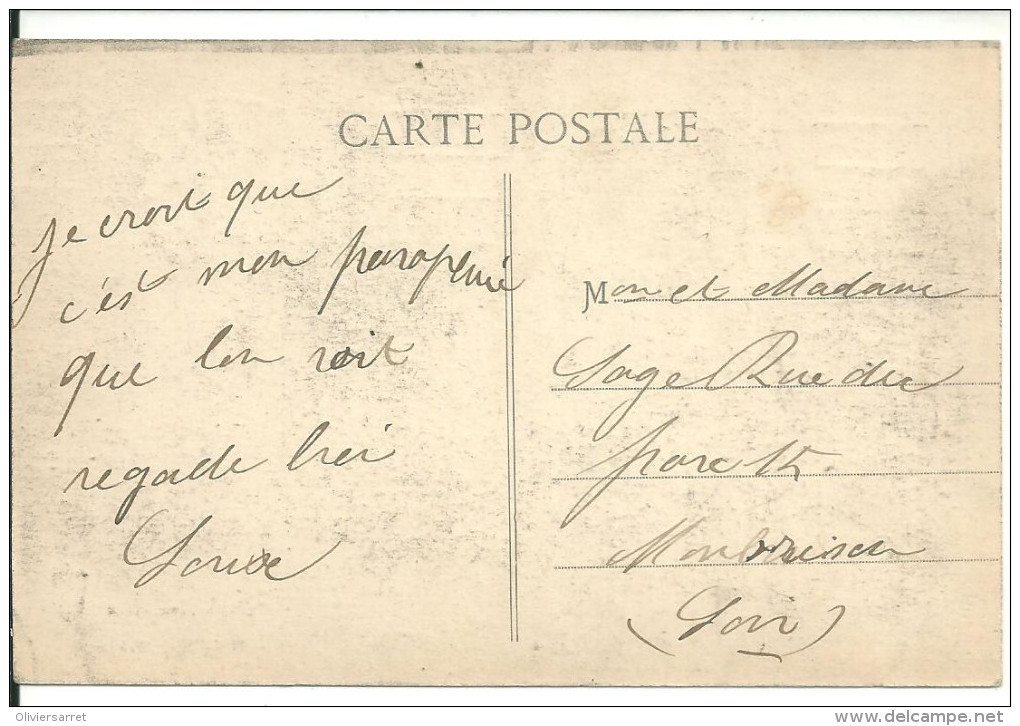 CARTE POSTALE
Je croit que
c'est mon parapluie
que lon voit
regarde hier
Louise
Mon et Madame
Sage Rue du
parc 15
Montbrison
(Loire)
Oliviersarret
www.delcampe.net